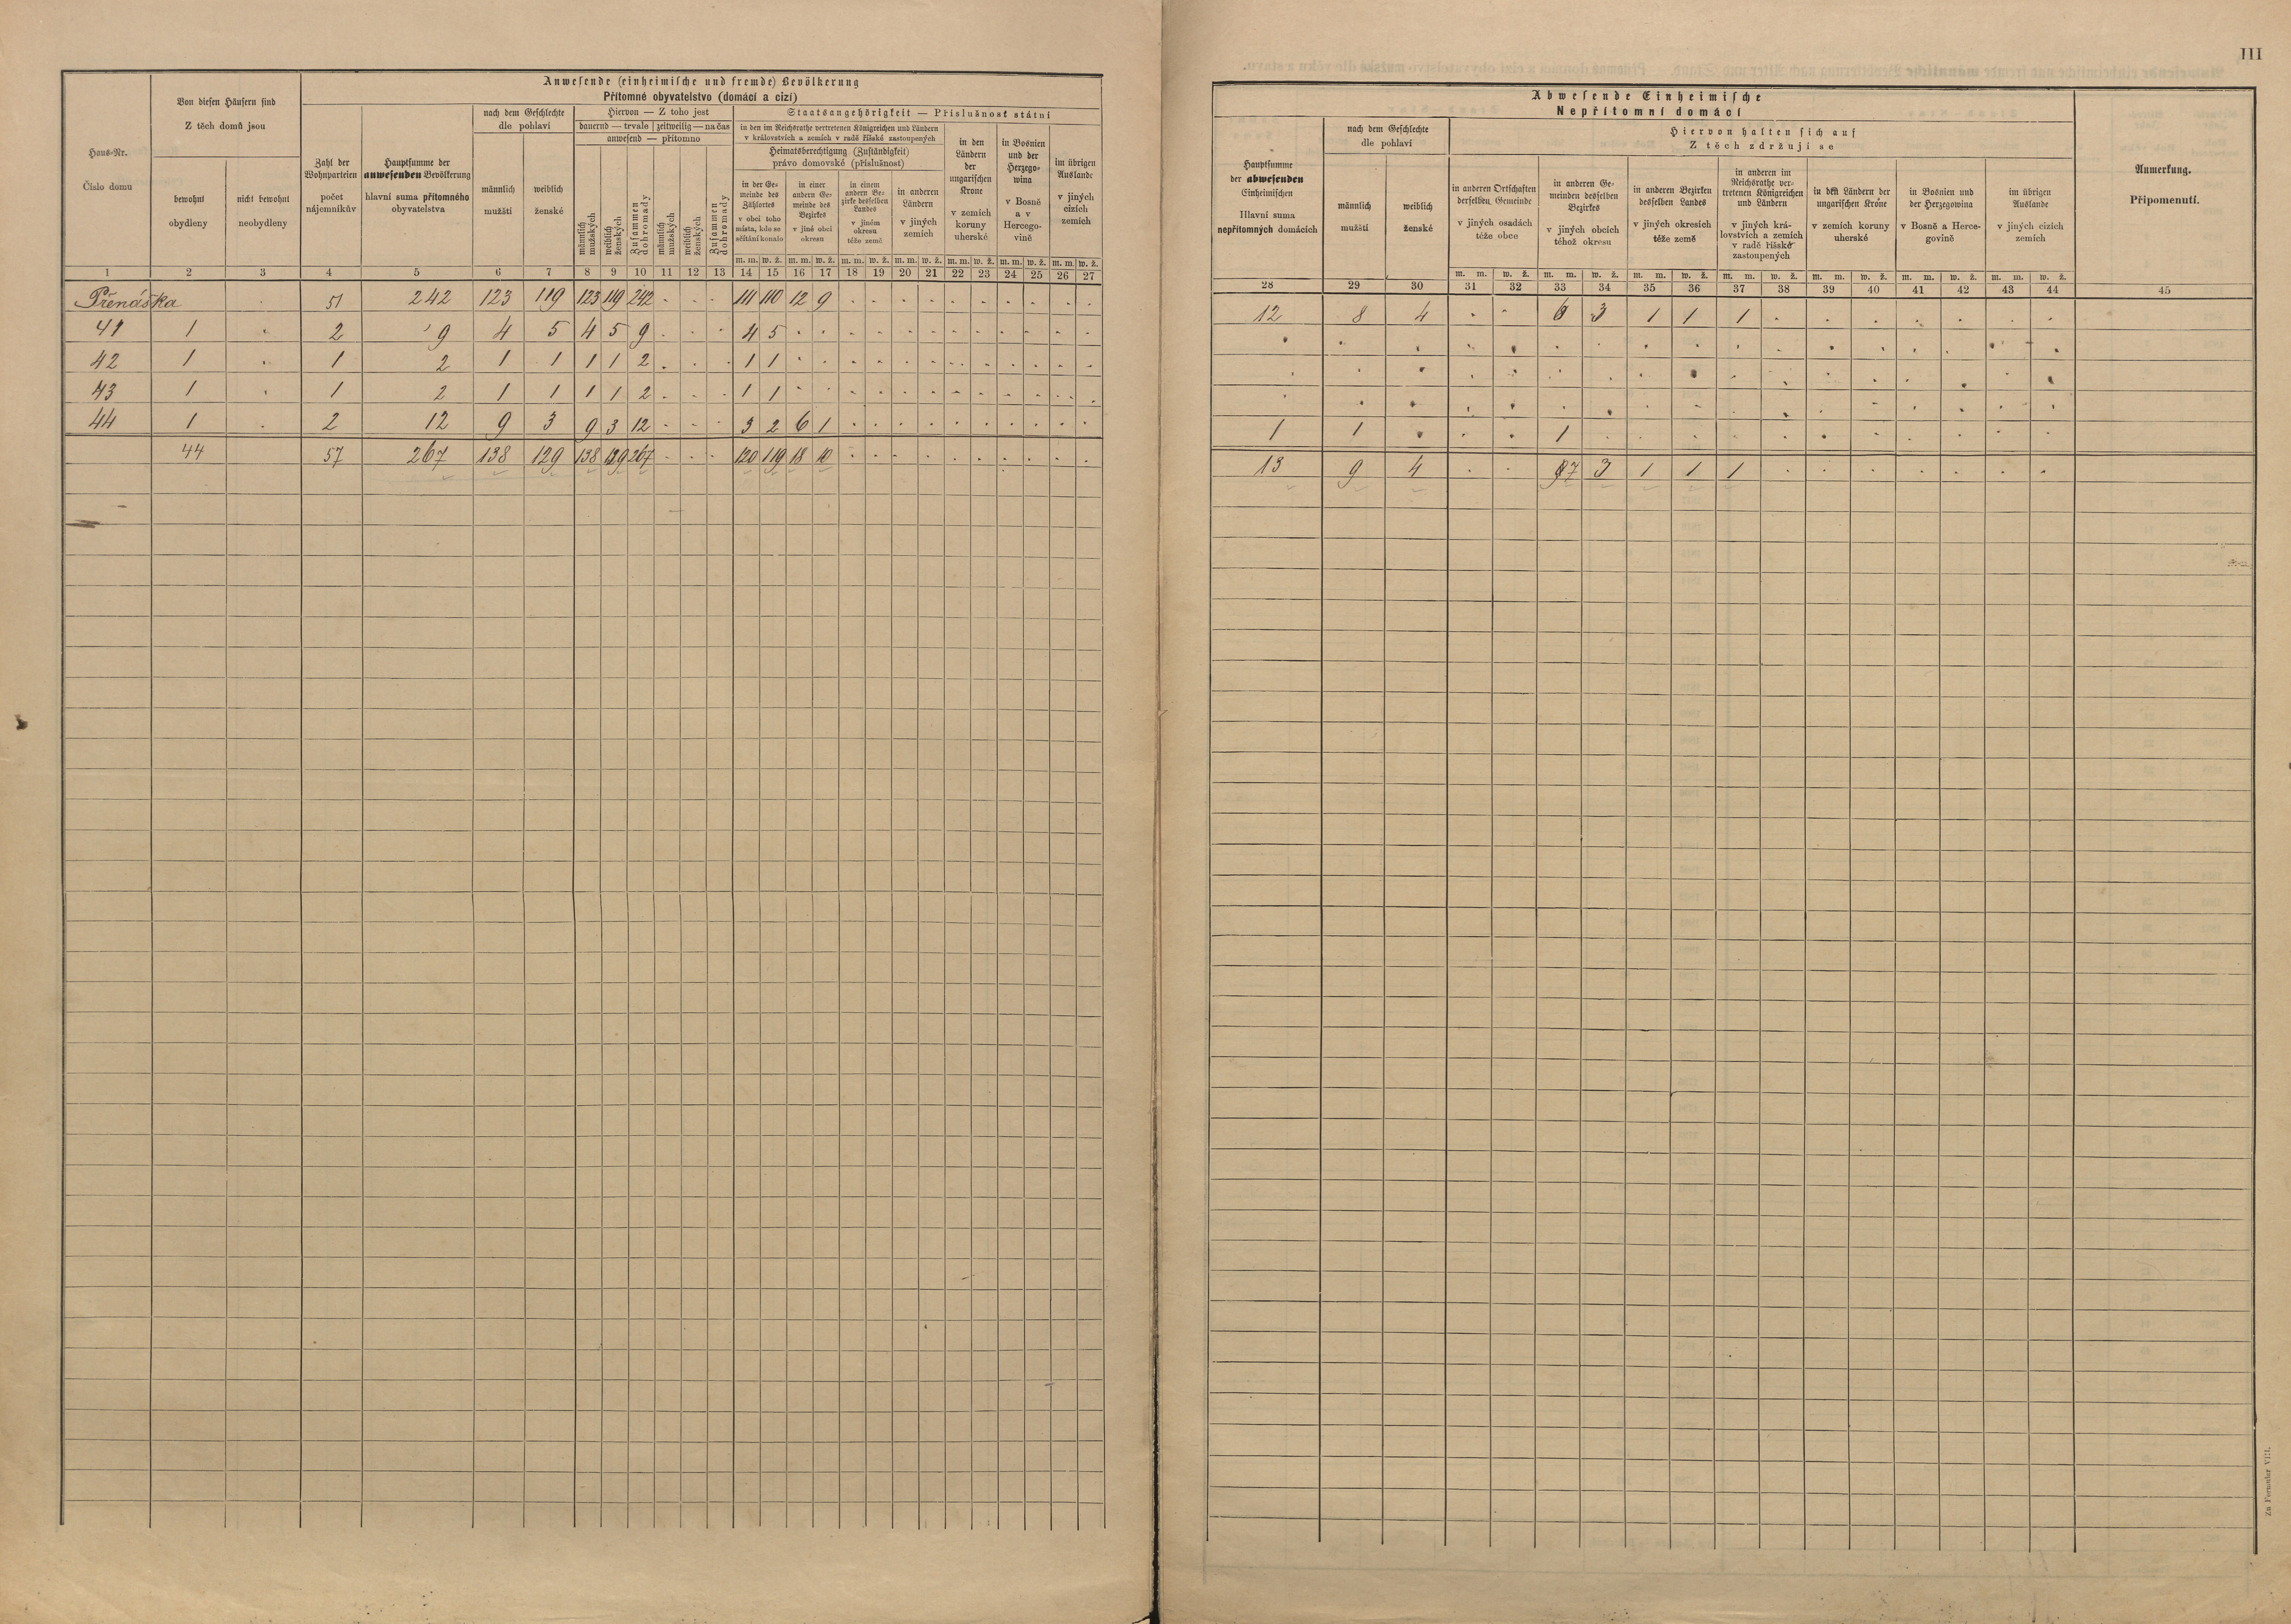 III
Anwesende (einheimische und fremde) Bevölkerung
Přítomné obyvatelstvo (domácí a cizí)
Haus-Nr.
Číslo domu
Von diesen Häusern sind
Z těch domů jsou
bewohnt
obydleny
nicht bewohnt
neobydleny
Zahl der
Wohnparteien
počet
nájemníkův
Hauptsumme der
anwesenden Bevölkerung
hlavní suma přítomného
obyvatelstva
nach dem Geschlechte
dle pohlaví
männlich
mužští
weiblich
ženské
Hiervon — Z toho jest
dauernd — trvale | zeitweilig — na čas
anwesend — přítomno
männlich
mužských
weiblich
ženských
Zusammen
dohromady
männlich
mužských
weiblich
ženských
Zusammen
dohromady
Staatsangehörigkeit — Příslušnost státní
in den im Reichsrathe vertretenen Königreichen und Ländern
v královstvích a zemích v radě říšské zastoupených
Heimatsberechtigung (Zuständigkeit)
právo domovské (příslušnost)
in der Ge-
meinde des
Zählortes
v obci toho
místa, kde se
sčítání konalo
in einer
andern Ge-
meinde des
Bezirkes
v jiné obci
okresu
in einem
andern Be-
zirke desselben
Landes
v jiném
okresu
téže země
in anderen
Ländern
v jiných
zemích
in den
Ländern
der
ungarischen
Krone
v zemích
koruny
uherské
in Bosnien
und der
Herzego-
wina
v Bosně
a v
Hercego-
vině
im übrigen
Auslande
v jiných
cizích
zemích
m. m. w. ž. m. m. w. ž. m. m. w. ž. m. m. w. ž. m. m. w. ž. m. m. w. ž. m. m. w. ž.
1 2 3 4 5 6 7 8 9 10 11 12 13 14 15 16 17 18 19 20 21 22 23 24 25 26 27
Přenáška . 51 242 123 119 123 119 242 . . . 111 110 12 9 . . . . . . . . . .
41 1 . 2 9 4 5 4 5 9 . . . 4 5 . . . . . . . . . . . .
42 1 . 1 2 1 1 1 1 2 . . . 1 1 . . . . . . . . . . . .
43 1 . 1 2 1 1 1 1 2 . . . 1 1 . . . . . . . . . . . .
44 1 . 2 12 9 3 9 3 12 . . . 3 2 6 1 . . . . . . . . . .
44 57 267 138 129 138 129 267 . . . 120 119 18 10 . . . . . . . . . .
Abwesende Einheimische
Nepřítomní domácí
Hauptsumme
der abwesenden
Einheimischen
Hlavní suma
nepřítomných domácích
nach dem Geschlechte
dle pohlaví
männlich
mužští
weiblich
ženské
Hiervon halten sich auf
Z těch zdržují se
in anderen Ortschaften
derselben Gemeinde
v jiných osadách
téže obce
in anderen Ge-
meinden desselben
Bezirkes
v jiných obcích
téhož okresu
in anderen Bezirken
desselben Landes
v jiných okresích
téže země
in anderen im
Reichsrathe ver-
tretenen Königreichen
und Ländern
v jiných krá-
lovstvích a zemích
v radě říšské
zastoupených
in den Ländern der
ungarischen Krone
v zemích koruny
uherské
in Bosnien und
der Herzegowina
v Bosně a Herce-
govině
im übrigen
Auslande
v jiných cizích
zemích
Anmerkung.
Připomenutí.
m. m. w. ž. m. m. w. ž. m. m. w. ž. m. m. w. ž. m. m. w. ž. m. m. w. ž. m. m. w. ž.
28 29 30 31 32 33 34 35 36 37 38 39 40 41 42 43 44 45
12 8 4 . . 6 3 1 1 1 . . . . . . .
. . . . . . . . . . . . . . . . .
. . . . . . . . . . . . . . . . .
. . . . . . . . . . . . . . . . .
1 1 . . . 1 . . . . . . . . . . .
13 9 4 . . 7 3 1 1 1 . . . . . . .
Zu Formular VIII.